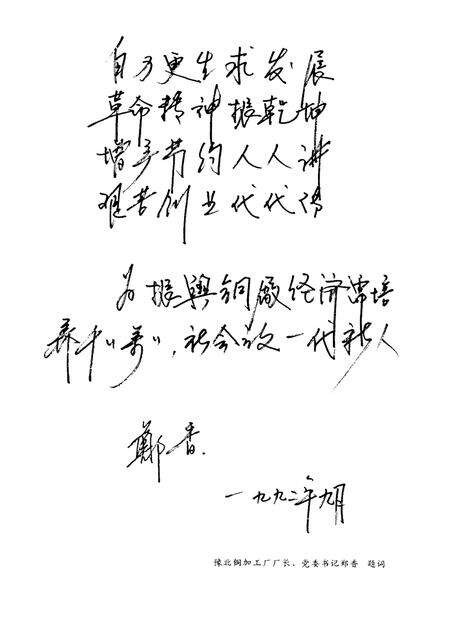 自力更生求发展
革命精神振乾坤
增产节约人人讲
艰苦创业代代传
为振興铜廠经济
养
社会 一代新人
鄭香.
一九九二年九月
豫北铜加工厂厂长、党委书记郑香 题词